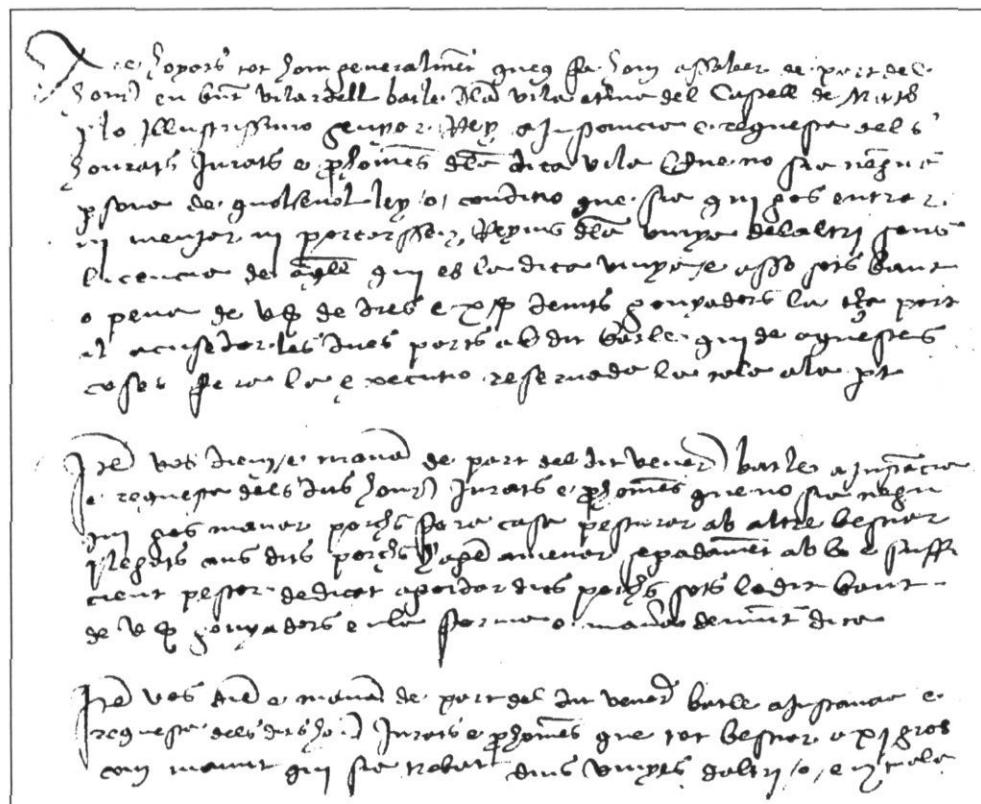 Are hoyats tot hom generalment queus fa hom assaber de part del
honor) en bnt vilardell batle dla vila e tme del Castell de
p lo Illustrissimo senyor Rey a Instancia e requesta dels
honrats Jurats e prohomes dla dita vila Que no sie negue
psona de qualsevol ley o condicio que sie qui gos entrar
ni menjar ni portarssen Reyms dla vinya delaltri sens
licencia de aqll qui es la dita vinya e asso sots bant
o pena de v s de dies e x s de nits guanyadors la tça part
al acusador les dues parts al dit batle qui de aquestes
coses fara la execucio reservada la tala a la pt
Ite vos diem e mana de part del dit vener) batle a Instacia
e requesta dels dits honor) Jurats e prohomes que no sie negu
qui gos manar porchs fora casa pesturar ab altre bestiar
plegats ans dits porchs hage amenar sepadament ab bo e suffi
cient pestor dedicat a portar dits porchs sots lo dit bant
de v s guanyadors en la forma o mana demunt dita
Ite vos diem e mana de part del dit vener batle a Instancia e
requesta dels dits ho) Jurats e prohomes que tot bestiar axi gros
com manut qui sie trobat dins vinyes daltri o en tala